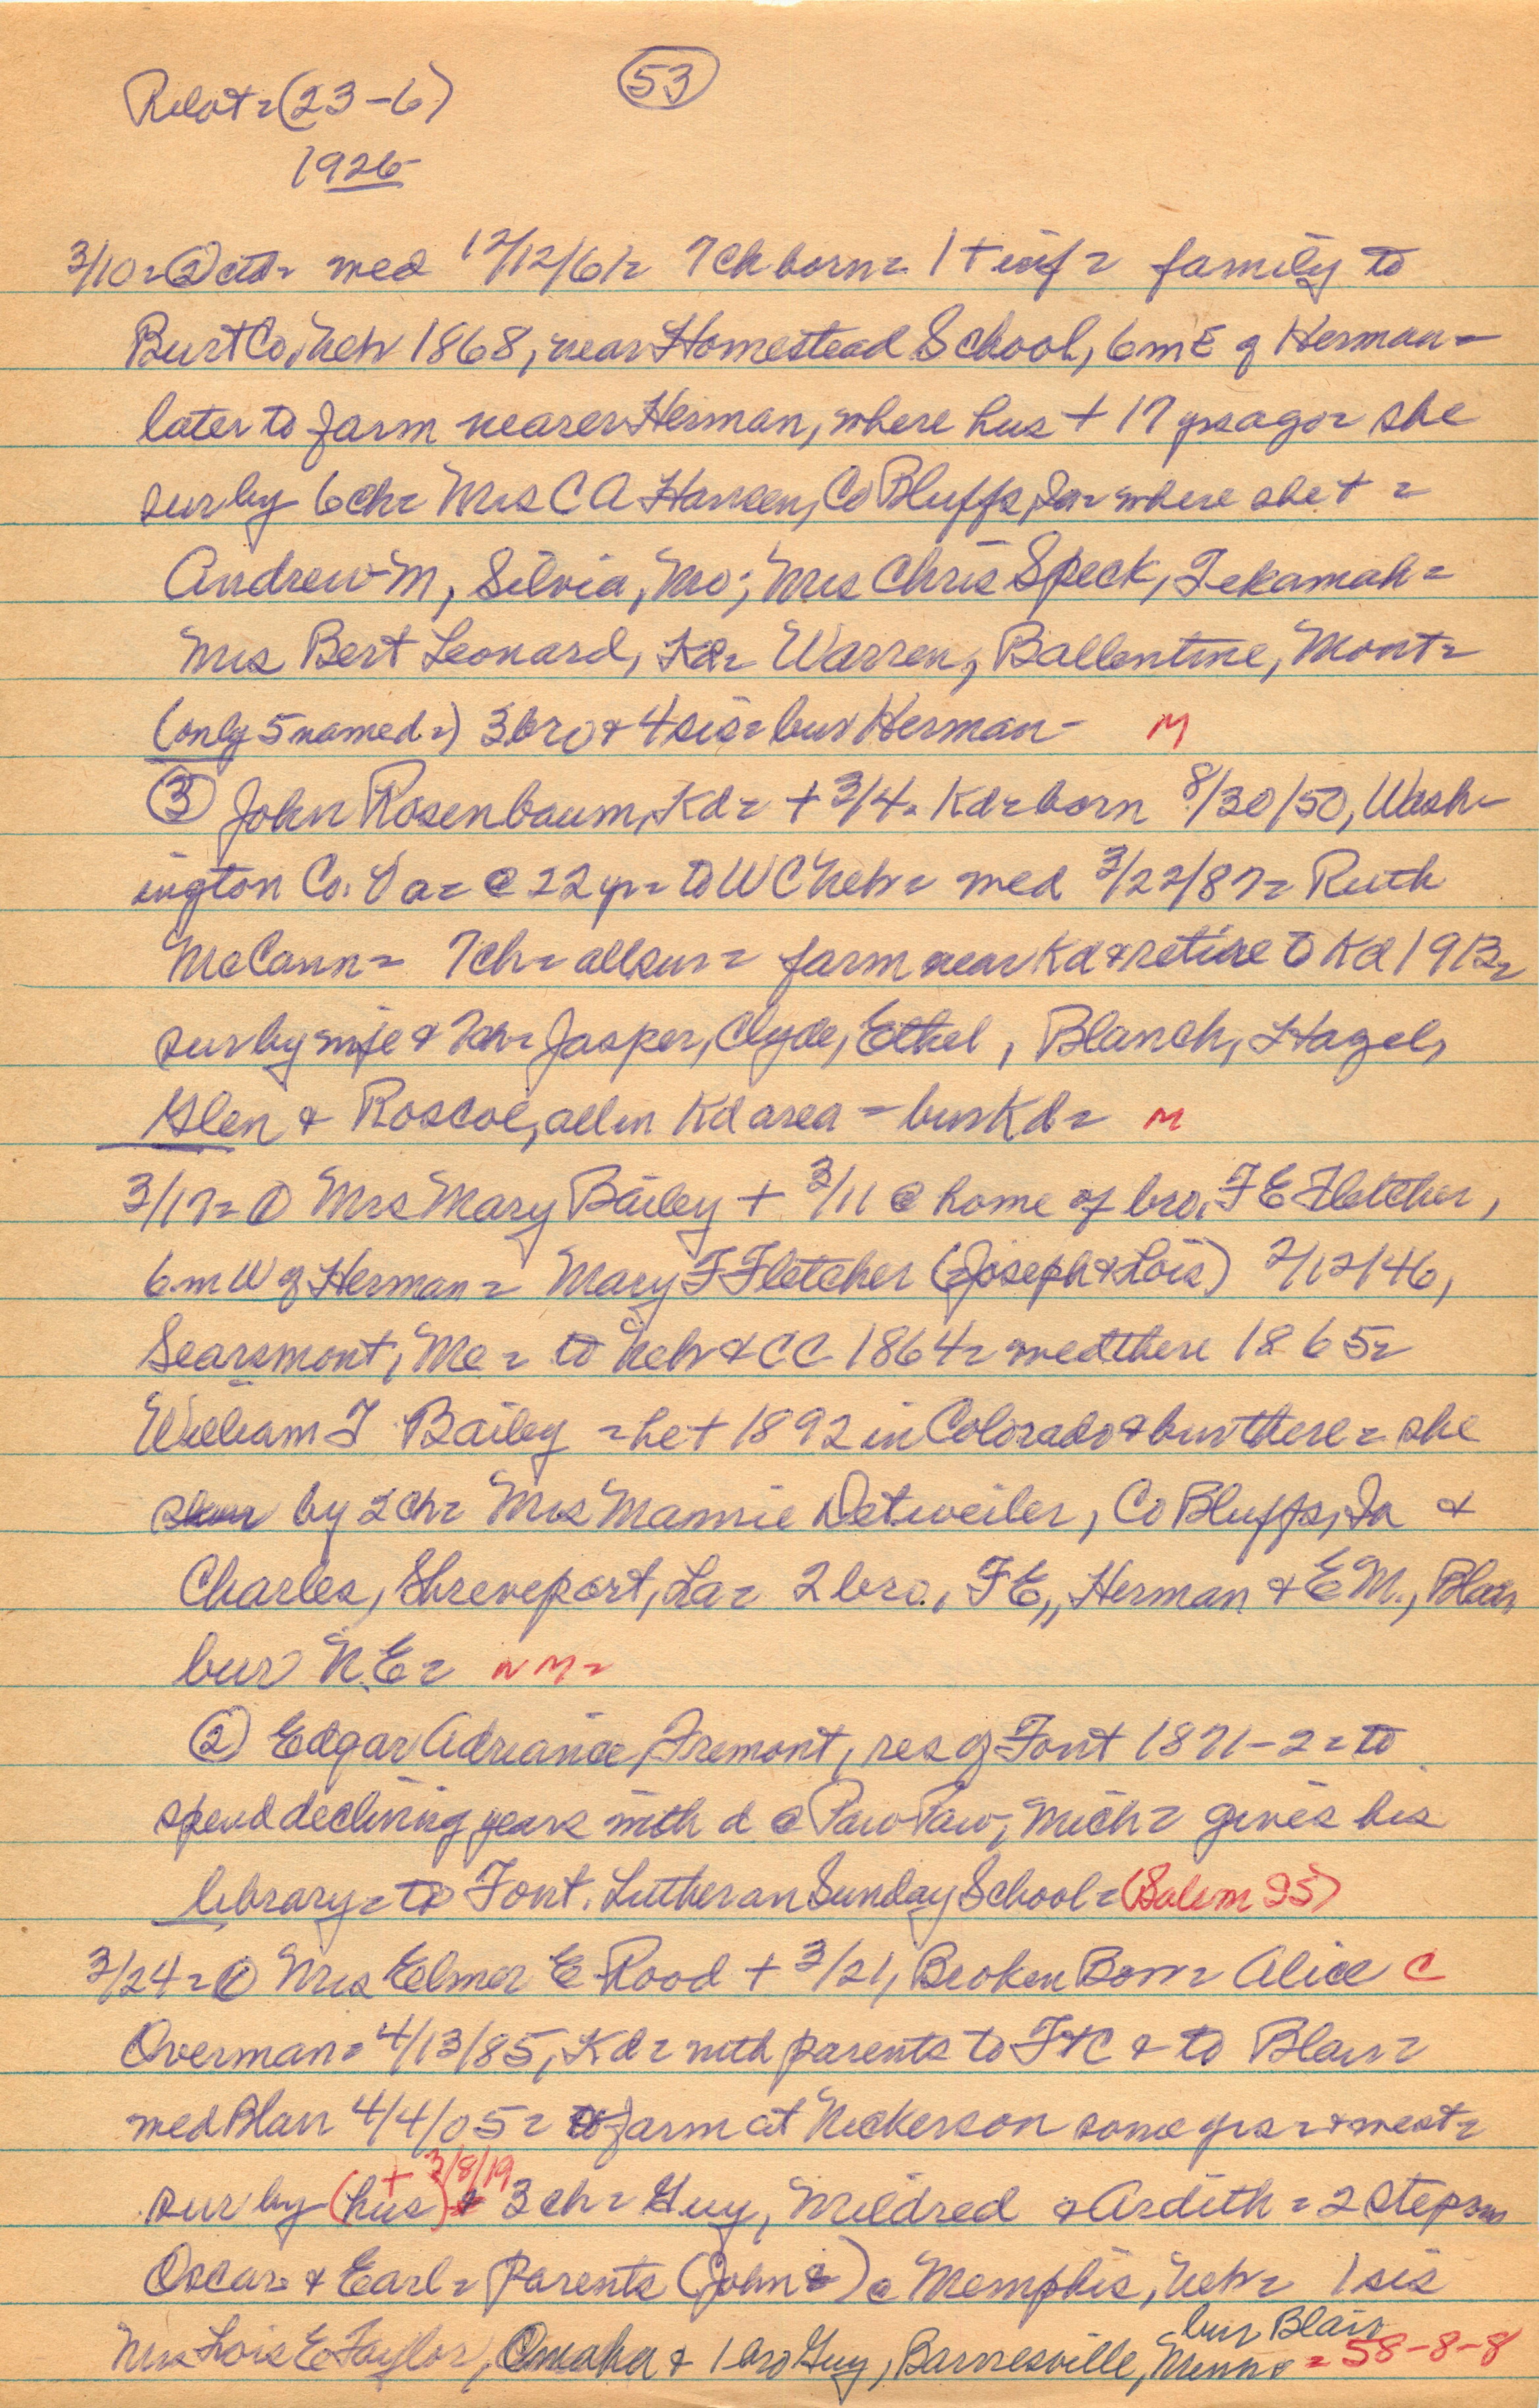 53
Pilot = (23-6)
1926
3/10 = (2) ctd = med 12/12/61 = 7 ch born = 1 + inf = family to
Burt Co, Neb 1868, near Homestead School, 6 m E of Herman =
later to farm nearer Herman, where hus + 17 yrs ago = she
sur by 6 ch = Mrs C A Hansen, Co Bluffs, Ia = where she + =
Andrew M, Silvia, Mo; Mrs Chris Speck, Tekamah =
Mrs Bert Leonard, Kd = Warren, Ballentine, Mont =
(only 5 named =) 3 bro & 4 sis = bur Herman - M
(3) John Rosenbaum, Kd = + 3/4 = Kd = born 8/30/50, Wash-
ington Co. Va = @ 22 yr = to W C Neb = med 3/22/87 = Ruth
McCann = 7 ch = all sur = farm near Kd & retire to Kd 1913 =
sur by wife & 7 ch = Jasper, Clyde, Ethel, Blanch, Hazel,
Glen & Roscoe, all in Kd area = bur Kd = M
3/17 = (1) Mrs Mary Bailey + 3/11 @ home of bro, F E Fletcher,
6 m W of Herman = Mary F Fletcher (Joseph & Lois) 2/12/46,
Searsmont, Me = to Neb & CC 1864 = med there 1865 =
William T Bailey = he + 1892 in Colorado & bur there = she
sur by 2 ch = Mrs Mamie Detweiler, Co Bluffs, Ia &
Charles, Shreveport, La = 2 bro., F E,, Herman & E M., Blair
bur N.E = N M =
(2) Edgar Adriance, Fremont, res of Font 1871-2 = to
spend declining years with d @ Paw Paw, Mich = gives his
library = to Font. Lutheran Sunday School = (Salem 25)
3/24 = (1) Mrs Elmer E Rood + 3/21, Broken Bow = Alice C
Overman = 4/13/85, Kd = with parents to Ft C & to Blair =
med Blair 4/4/05 = to farm at Nickerson some yrs = & west =
sur by (hus) + 3/8/19 & 3 ch = Guy, Mildred & Ardith = 2 stepsons
Oscar & Earl = Parents (John & ) @ Memphis, Neb = 1 sis
Mrs Lois E Taylor, Omaha & 1 bro Guy, Barnesville, Minn = bur Blair = 58-8-8